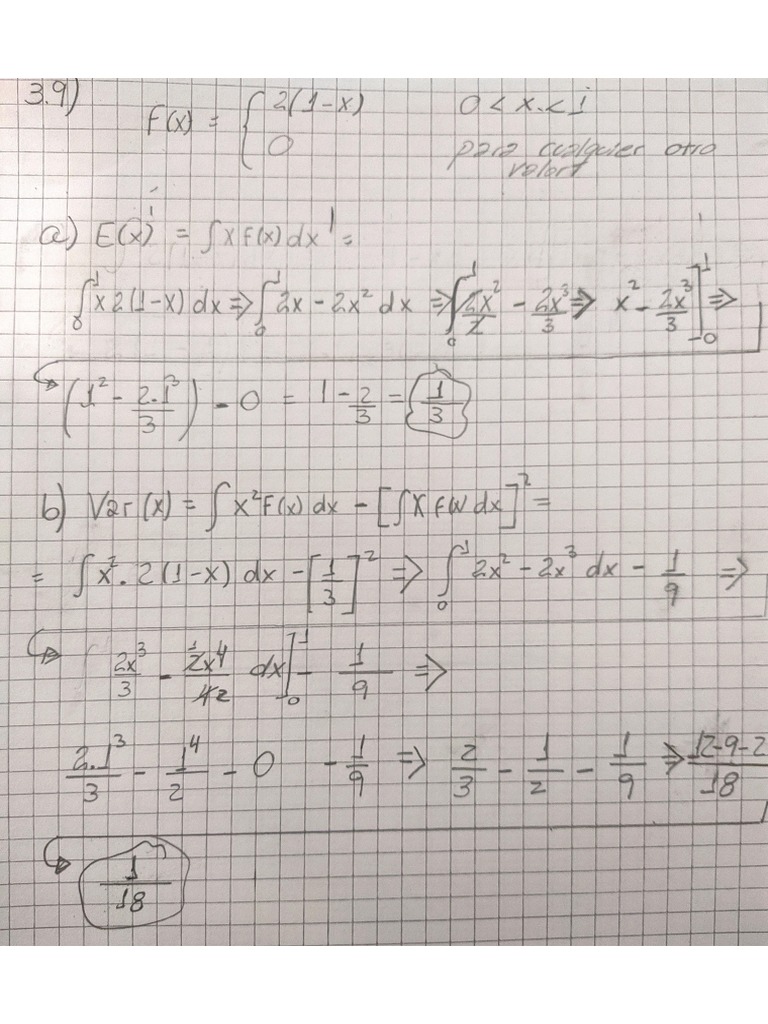 3.9)
F(x) = { 2(1-x) 0 < x. < 1
0 para cualquier otro
valor
a) E(x) = ∫ x F(x) dx =
∫₀¹ x 2(1-x) dx ⇒ ∫₀¹ 2x - 2x² dx ⇒ ∫₀¹ 2x²/2 - 2x³/3 ⇒ x² - 2x³/3 ]₀¹ ⇒
(1² - 2.1³/3) - 0 = 1 - 2/3 = 1/3
b) Var (x) = ∫ x² F(x) dx - [∫ x F(x) dx]² =
= ∫ x². 2(1-x) dx - [1/3]² ⇒ ∫₀¹ 2x² - 2x³ dx - 1/9 ⇒
2x³/3 - 2x⁴/42 dx ]₀¹ - 1/9 ⇒
2.1³/3 - 1⁴/2 - 0 - 1/9 ⇒ 2/3 - 1/2 - 1/9 ⇒ 12-9-2/18
1/18